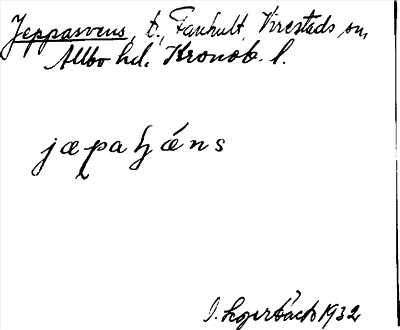 Jeppasvens, t., Fanhult, Virestads sn,
Allbo hd. Kronob. l.
jæpahæ̂ns
1932